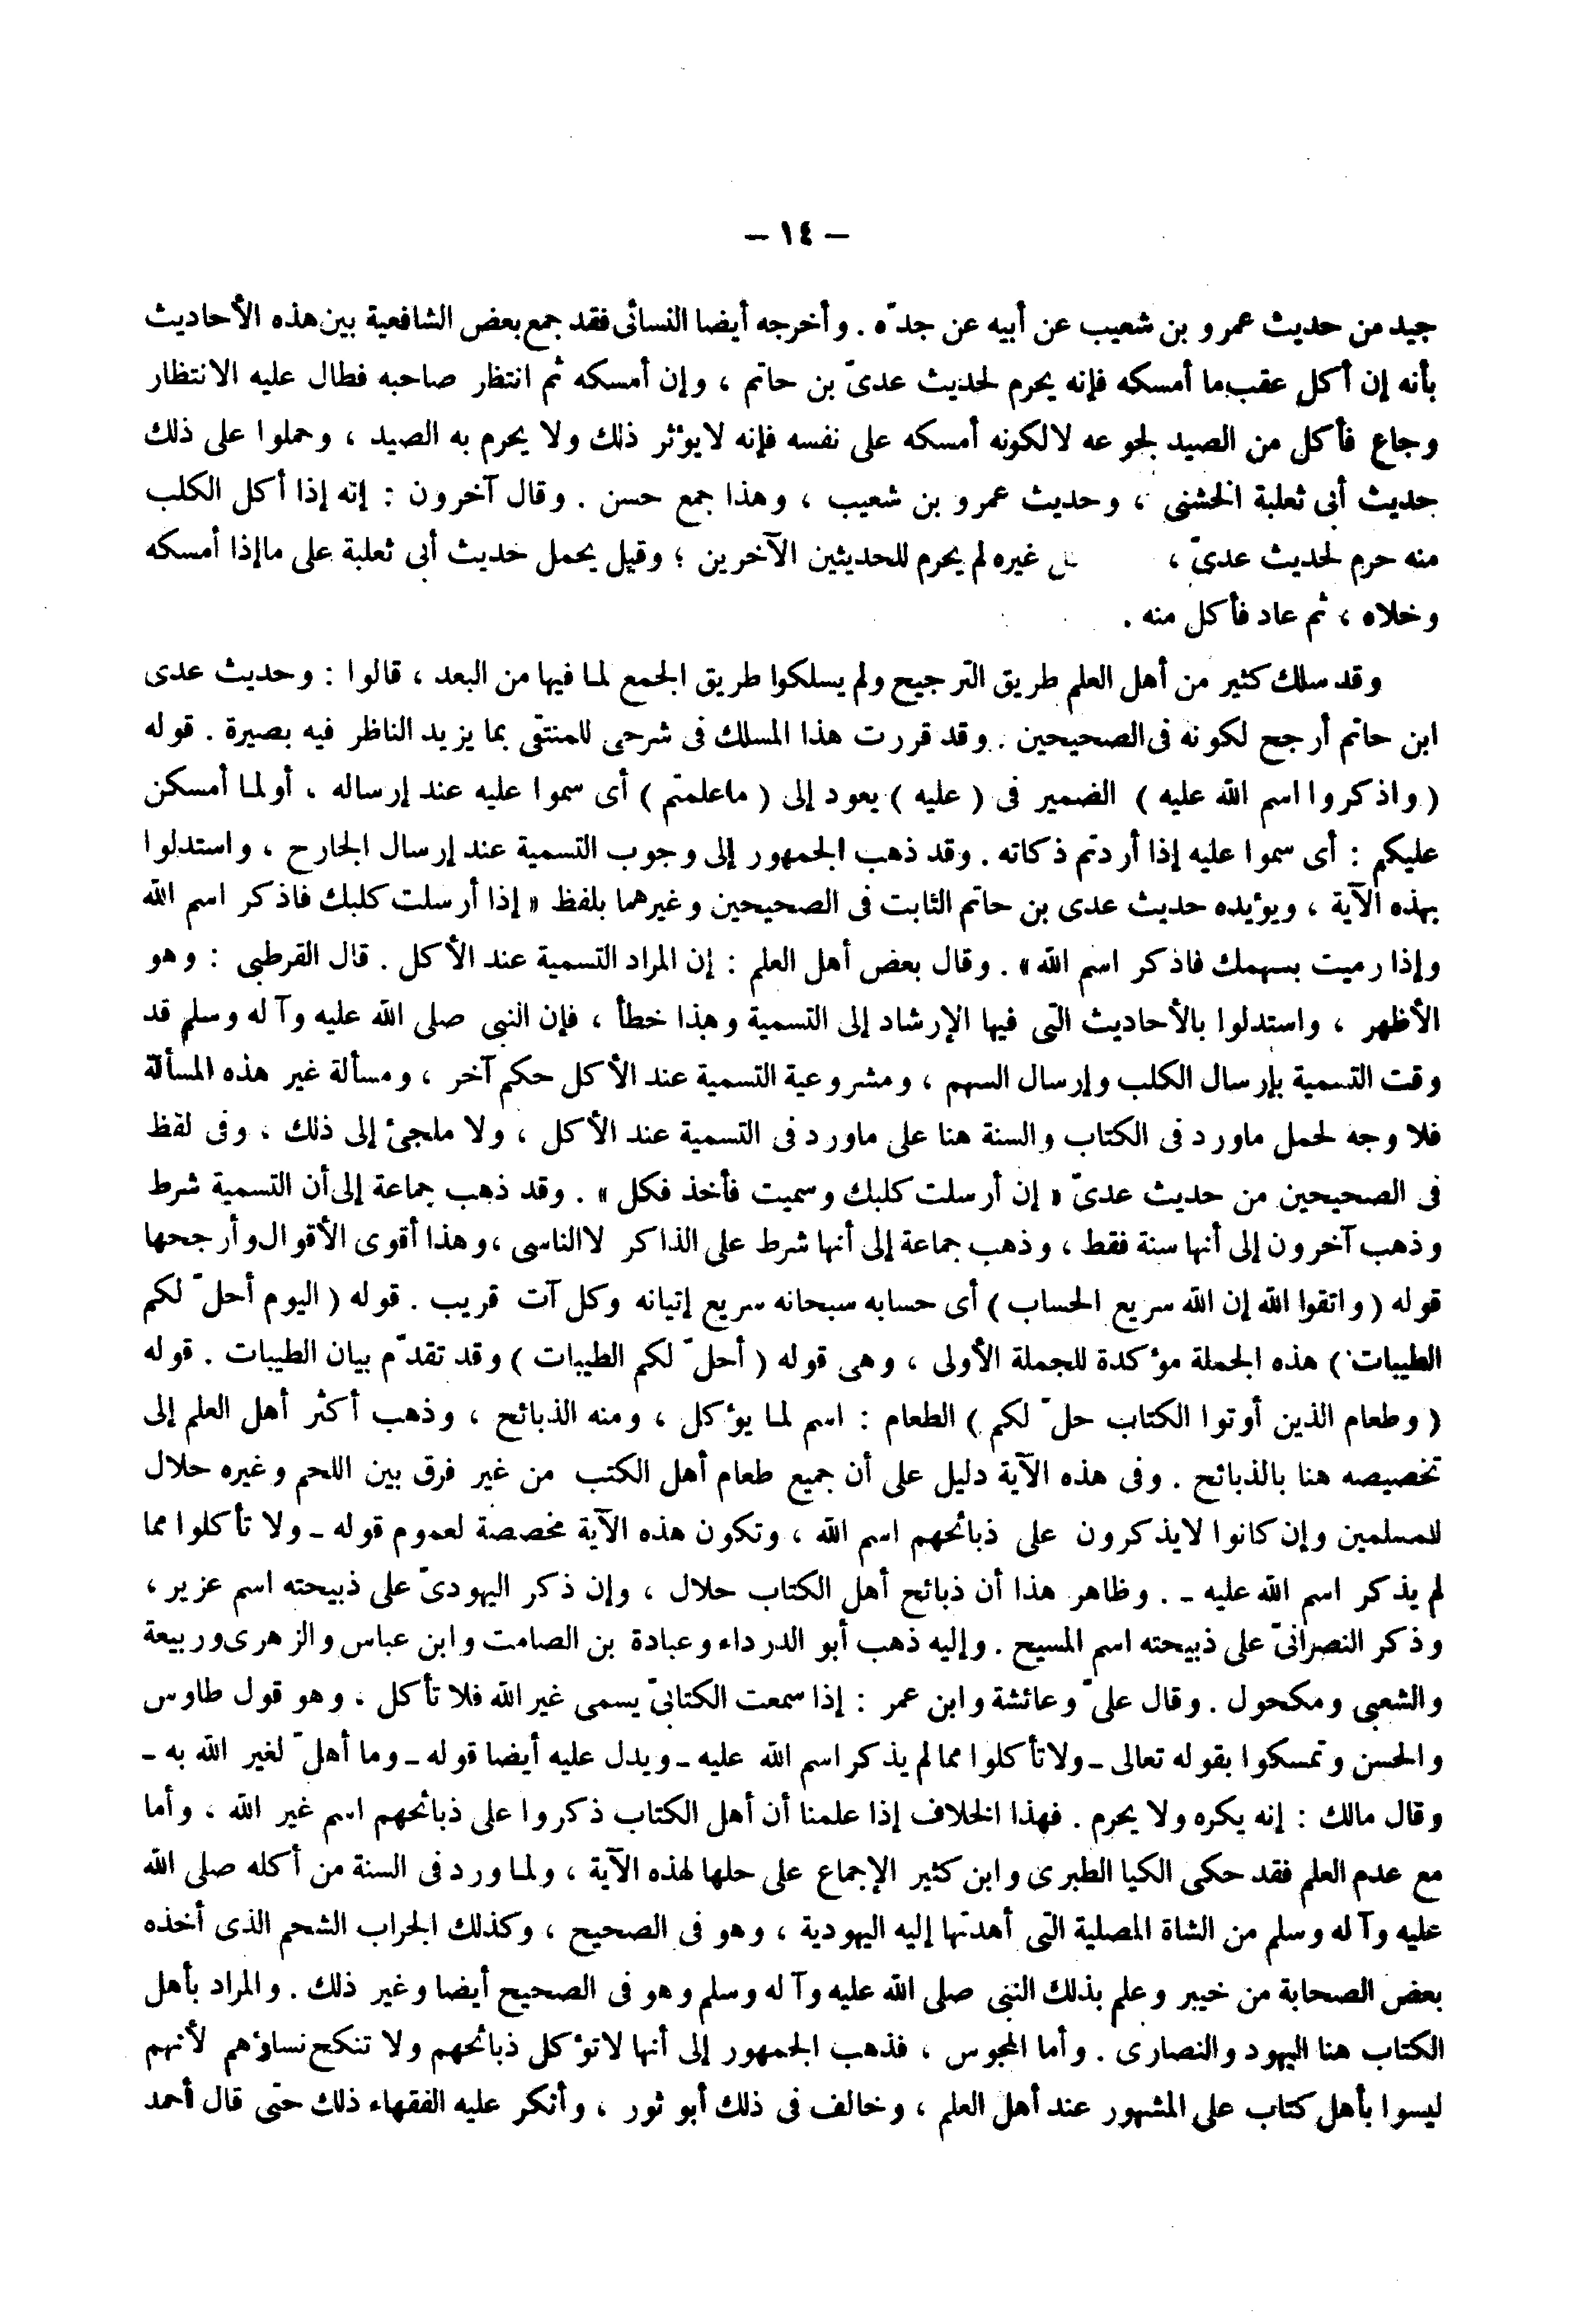 – ١٤ –
جيد من حديث عمرو بن شعيب عن أبيه عن جدّه . وأخرجه أيضا النسائى فقد جمع بعض الشافعية بين هذه الأحاديث
بأنه إن أكل عقب ما أمسكه فإنه يحرم لحديث عدىّ بن حاتم ، وإن أمسكه ثم انتظر صاحبه فطال عليه الانتظار
وجاع فأكل من الصيد لجوعه لالكونه أمسكه على نفسه فإنه لايؤثر ذلك ولا يحرم به الصيد ، وحملوا على ذلك
حديث أبى ثعلبة الخشنى ، وحديث عمرو بن شعيب ، وهذا جمع حسن . وقال آخرون : إنه إذا أكل الكلب
منه حرم لحديث عدىّ ، غيره لم يحرم للحديثين الآخرين ؛ وقيل يحمل حديث أبى ثعلبة على ماإذا أمسكه
وخلاه ، ثم عاد فأكل منه .
وقد سلك كثير من أهل العلم طريق الترجيح ولم يسلكوا طريق الجمع لما فيها من البعد ، قالوا : وحديث عدى
ابن حاتم أرجح لكونه فى الصحيحين . وقد قررت هذا المسلك فى شرحى للمنتقى بما يزيد الناظر فيه بصيرة . قوله
( واذكروا اسم الله عليه ) الضمير فى ( عليه ) يعود إلى ( ماعلمتم ) أى سموا عليه عند إرساله ، أولما أمسكن
عليكم : أى سموا عليه إذا أردتم ذكاته . وقد ذهب الجمهور إلى وجوب التسمية عند إرسال الجارح ، واستدلوا
بهذه الآية ، ويؤيده حديث عدى بن حاتم الثابت فى الصحيحين وغيرهما بلفظ « إذا أرسلت كلبك فاذكر اسم الله
وإذا رميت بسهمك فاذكر اسم الله » . وقال بعض أهل العلم : إن المراد التسمية عند الأكل . قال القرطبى : وهو
الأظهر ، واستدلوا بالأحاديث التى فيها الإرشاد إلى التسمية وهذا خطأ ، فإن النبى صلى الله عليه وآله وسلم قد
وقت التسمية بإرسال الكلب وإرسال السهم ، ومشروعية التسمية عند الأكل حكم آخر ، ومسألة غير هذه المسألة
فلا وجه لحمل ماورد فى الكتاب والسنة هنا على ماورد فى التسمية عند الأكل ، ولا ملجئ إلى ذلك ، وفى لفظ
فى الصحيحين من حديث عدىّ « إن أرسلت كلبك وسميت فأخذ فكل » . وقد ذهب جماعة إلى أن التسمية شرط
وذهب آخرون إلى أنها سنة فقط ، وذهب جماعة إلى أنها شرط على الذاكر لاالناسى ، وهذا أقوى الأقوال وأرجحها
قوله ( واتقوا الله إن الله سريع الحساب ) أى حسابه سبحانه سريع إتيانه وكل آت قريب . قوله ( اليوم أحلّ لكم
الطيبات ) هذه الجملة مؤكدة للجملة الأولى ، وهى قوله ( أحلّ لكم الطيبات ) وقد تقدّم بيان الطيبات . قوله
( وطعام الذين أوتوا الكتاب حلّ لكم ) الطعام : اسم لما يؤكل ، ومنه الذبائح ، وذهب أكثر أهل العلم إلى
تخصيصه هنا بالذبائح . وفى هذه الآية دليل على أن جميع طعام أهل الكتب من غير فرق بين اللحم وغيره حلال
للمسلمين وإن كانوا لايذكرون على ذبائحهم اسم الله ، وتكون هذه الآية مخصصة لعموم قوله - ولا تأكلوا مما
لم يذكر اسم الله عليه - . وظاهر هذا أن ذبائح أهل الكتاب حلال ، وإن ذكر اليهودىّ على ذبيحته اسم عزير ،
وذكر النصرانىّ على ذبيحته اسم المسيح . وإليه ذهب أبو الدرداء وعبادة بن الصامت وابن عباس والزهرى وربيعة
والشعبى ومكحول . وقال علىّ وعائشة وابن عمر : إذا سمعت الكتابىّ يسمى غير الله فلا تأكل ، وهو قول طاوس
والحسن وتمسكوا بقوله تعالى - ولاتأكلوا مما لم يذكر اسم الله عليه - ويدل عليه أيضا قوله - وما أهلّ لغير الله به -
وقال مالك : إنه يكره ولا يحرم . فهذا الخلاف إذا علمنا أن أهل الكتاب ذكروا على ذبائحهم اسم غير الله ، وأما
مع عدم العلم فقد حكى الكيا الطبرى وابن كثير الإجماع على حلها لهذه الآية ، ولما ورد فى السنة من أكله صلى الله
عليه وآله وسلم من الشاة المصلية التى أهدتها إليه اليهودية ، وهو فى الصحيح ، وكذلك الجراب الشحم الذى أخذه
بعض الصحابة من خيبر وعلم بذلك النبى صلى الله عليه وآله وسلم وهو فى الصحيح أيضا وغير ذلك . والمراد بأهل
الكتاب هنا اليهود والنصارى . وأما المجوس ، فذهب الجمهور إلى أنها لاتؤكل ذبائحهم ولا تنكح نساؤهم لأنهم
ليسوا بأهل كتاب على المشهور عند أهل العلم ، وخالف فى ذلك أبو ثور ، وأنكر عليه الفقهاء ذلك حتى قال أحمد